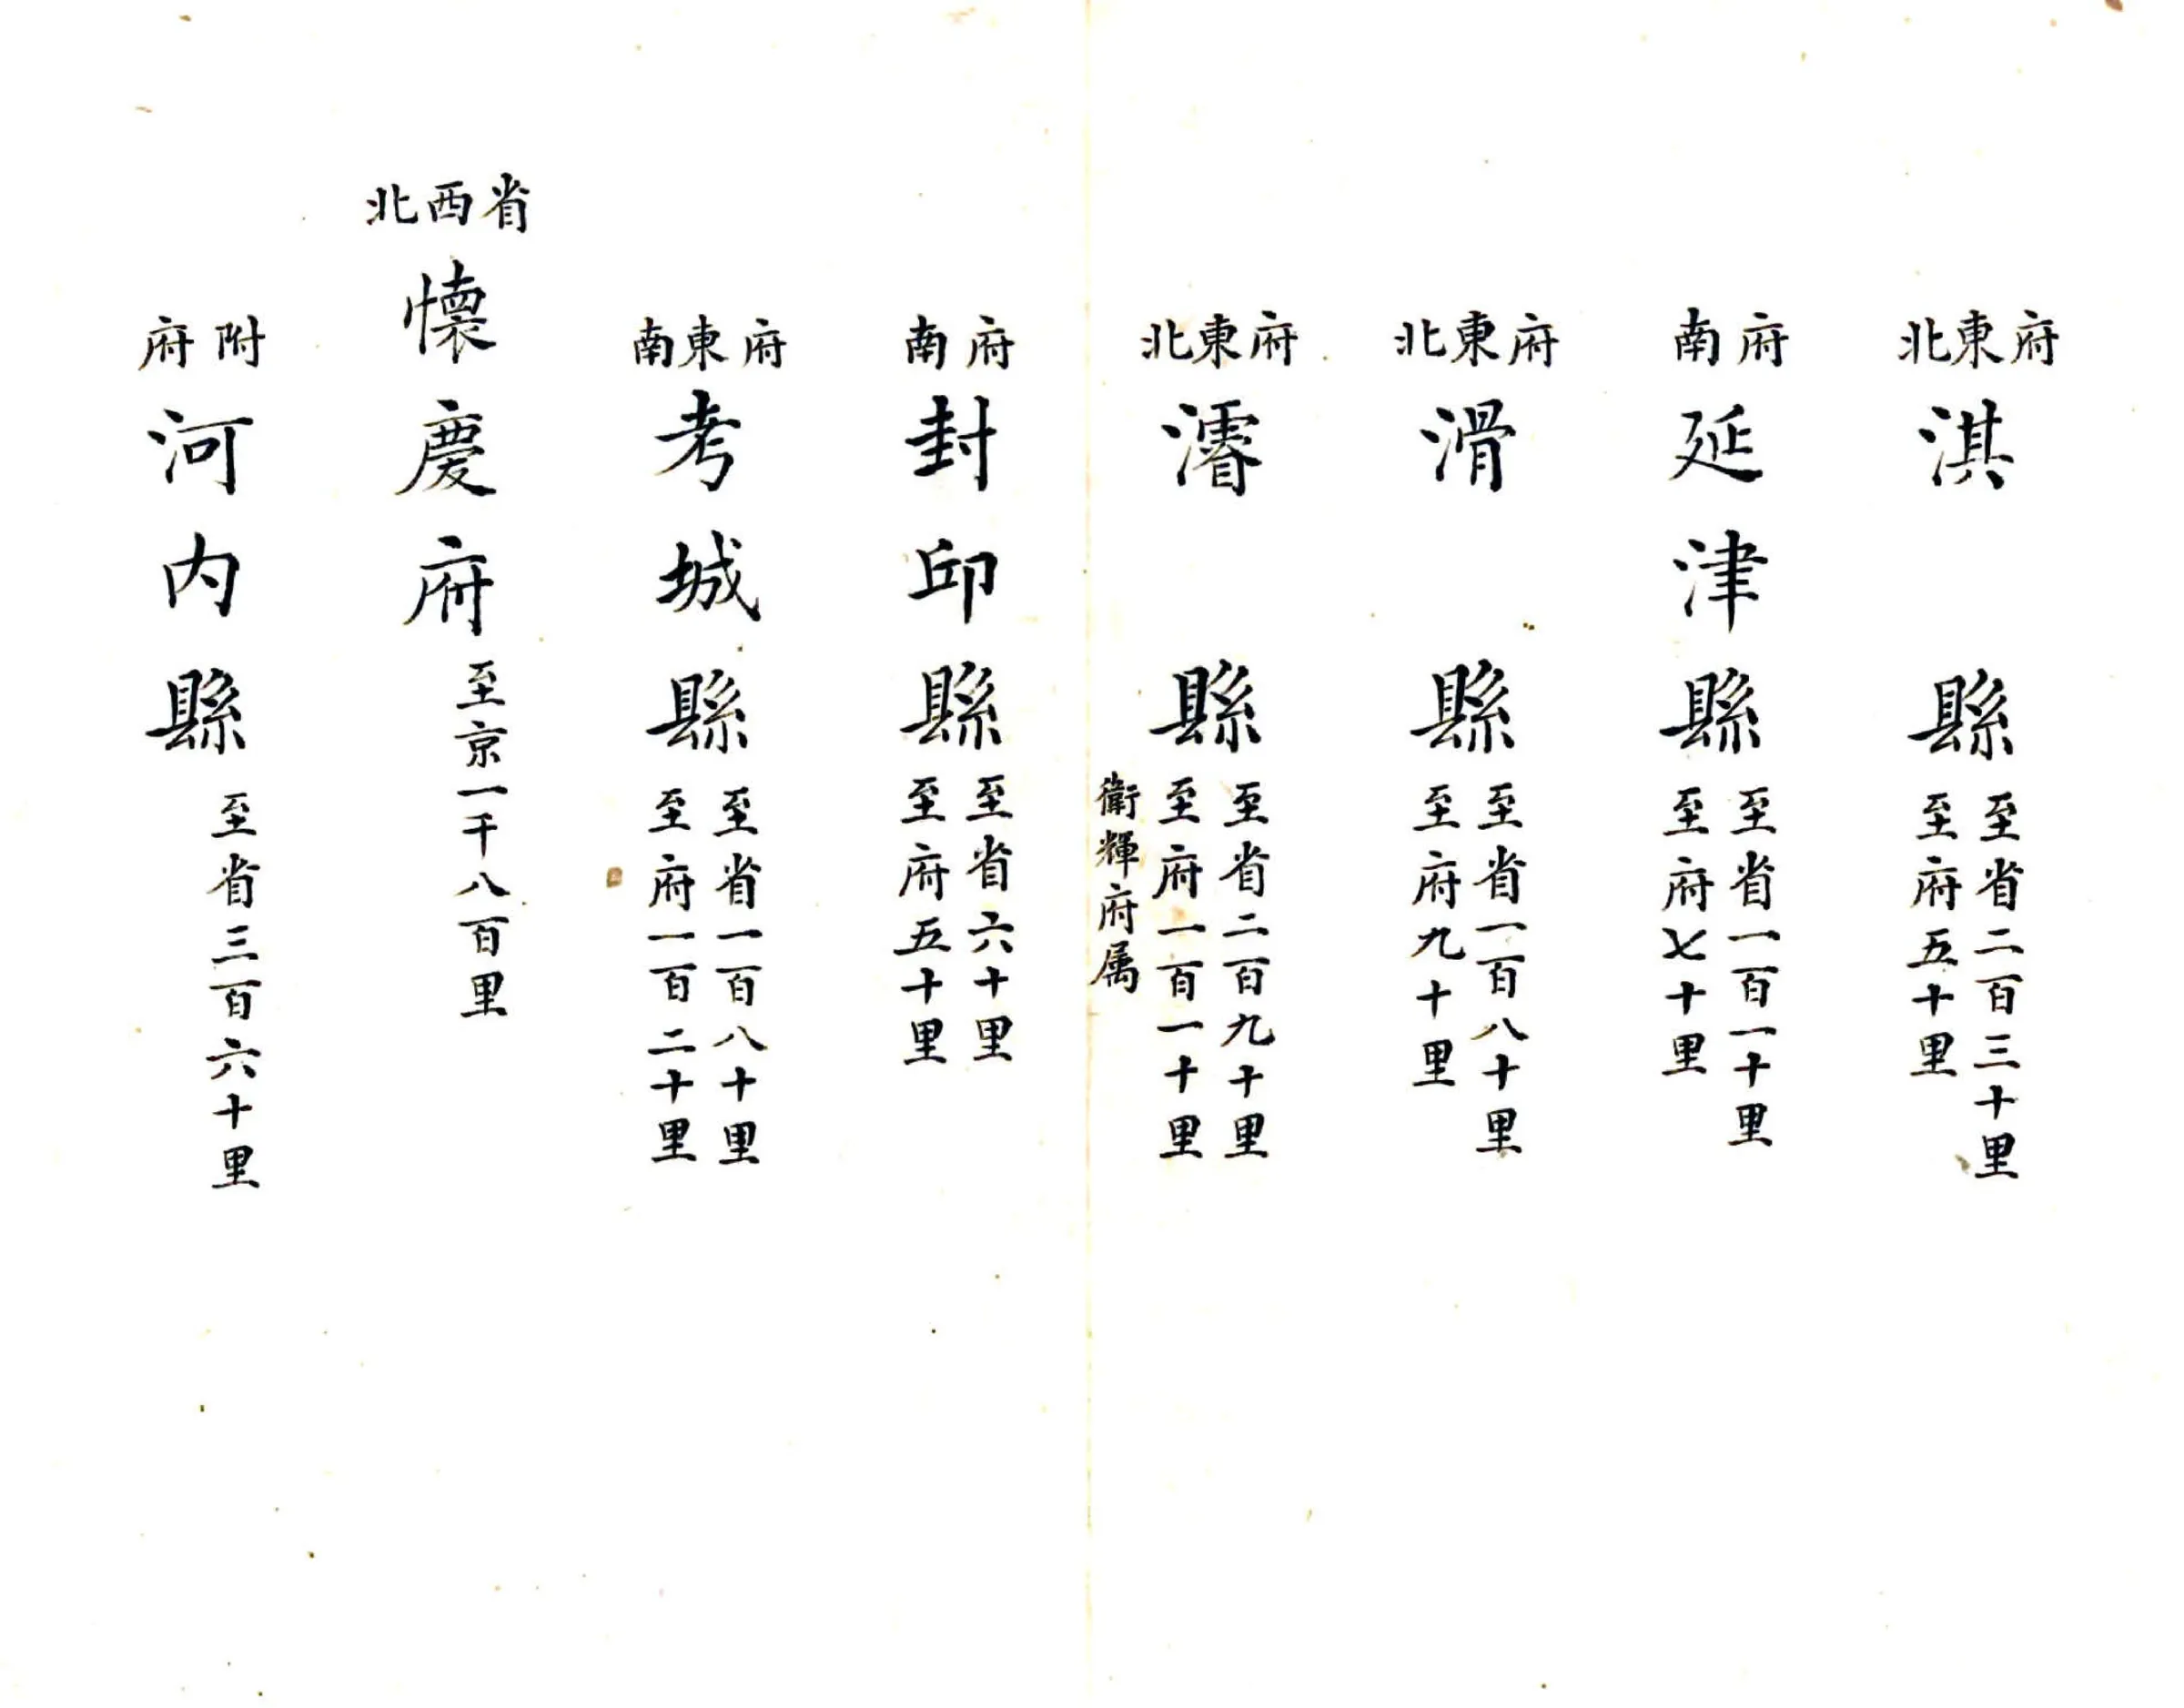 府東北
淇縣
至省二百三十里
至府五十里
府南
延津縣
至省一百一十里
至府七十里
府東北
滑縣
至省一百八十里
至府九十里
府東北
濬縣
至省二百九十里
至府一百一十里
衛輝府属
府南
封邱縣
至省六十里
至府五十里
府東南
考城縣
至省一百八十里
至府一百二十里
省西北
懷慶府
至京一千八百里
附府
河内縣
至省三百六十里